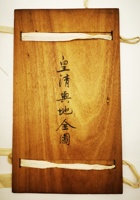 皇清輿地全圖